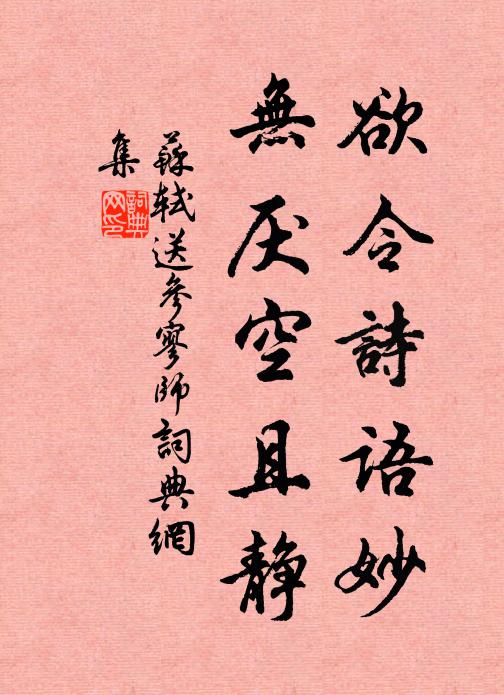 欲令詩語妙
無厌空且静
蘇軾送參寥師詞典網
集
詞典
网印